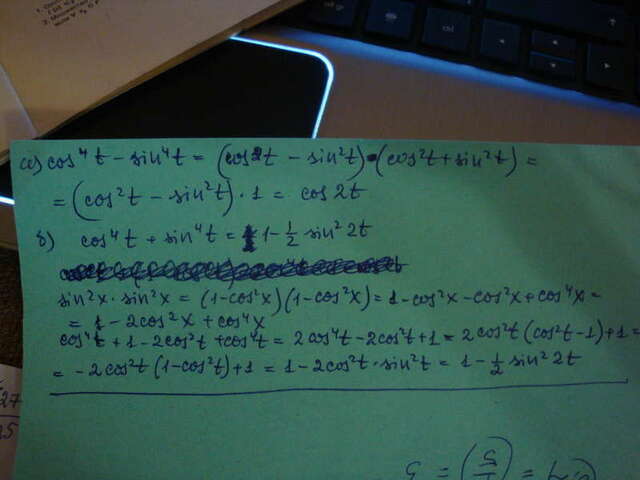 а) cos⁴t - sin⁴t = (cos²t - sin²t)•(cos²t + sin²t) =
= (cos²t - sin²t)·1 = cos2t
б) cos⁴t + sin⁴t = 1 - ½ sin²2t
sin²x · sin²x = (1-cos²x)(1-cos²x) = 1-cos²x-cos²x+cos⁴x =
= 1 - 2cos²x + cos⁴x
cos⁴t + 1 - 2cos²t + cos⁴t = 2cos⁴t - 2cos²t + 1 = 2cos²t(cos²t-1)+1 =
= -2cos²t(1-cos²t)+1 = 1-2cos²t·sin²t = 1-½ sin²2t